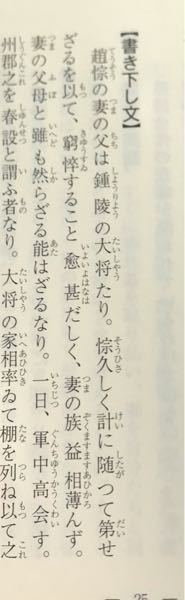 【書き下し文】
趙悰の妻の父は鍾陵の大将たり。悰久しく計に随つて第せ
ざるを以て、窮悴すること愈甚だしく、妻の族益相薄んず。
妻の父母と雖も然らざる能はざるなり。一日、軍中高会す。
州郡之を春設と謂ふ者なり。大将の家相率ゐて棚を列ね以て之